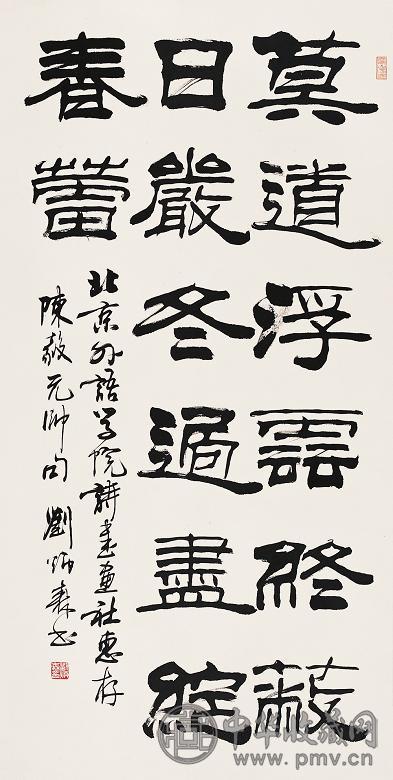 莫道浮雲終蔽
日嚴冬過盡綻
春蕾
北京外語学院詩書畫社惠存
陳毅元帥句 劉炳森書
中华收藏网
www.pmv.cn